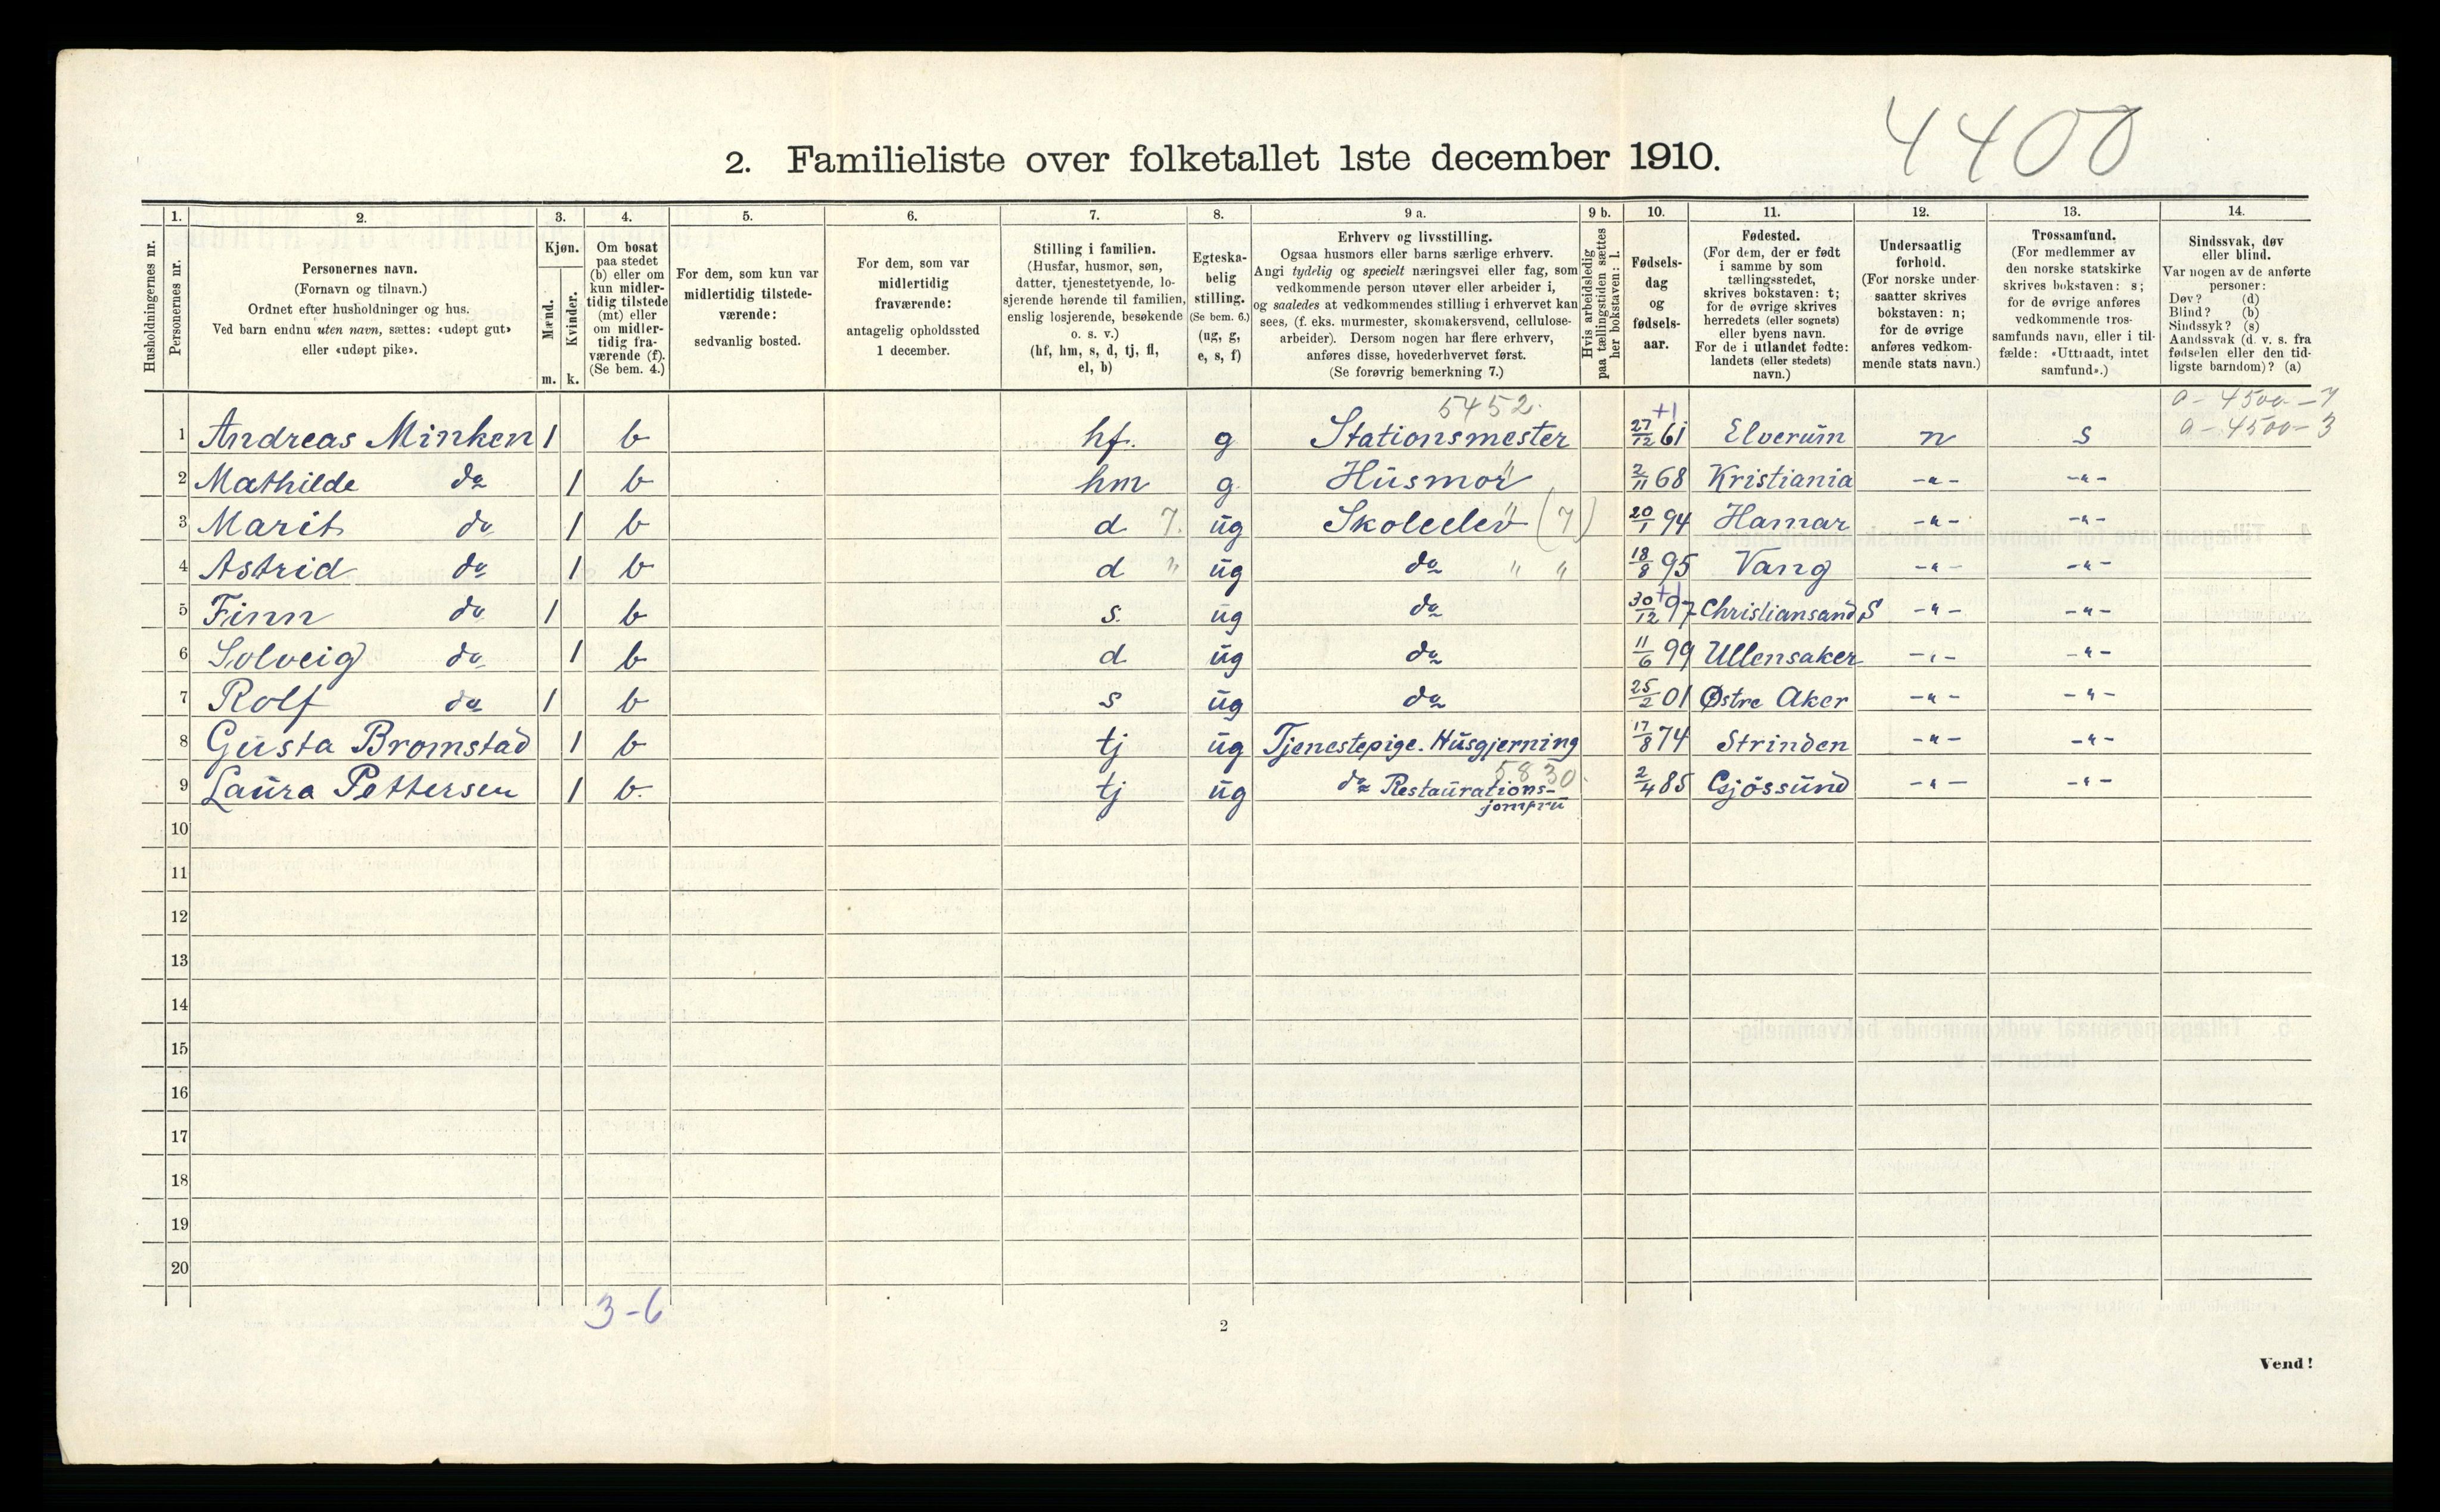 4400
2. Familieliste over folketallet 1ste december 1910.
Husholdningernes nr.
1.
Personernes nr.
2.
Personernes navn.
(Fornavn og tilnavn.)
Ordnet efter husholdninger og hus.
Ved barn endnu uten navn, sættes: «udøpt gut»
eller «udøpt pike».
3.
Kjøn.
Mænd.
Kvinder.
m. k.
4.
Om bosat
paa stedet
(b) eller om
kun midler-
tidig tilstede
(mt) eller
om midler-
tidig fra-
værende (f).
(Se bem. 4.)
5.
For dem, som kun var
midlertidig tilstede-
værende:
sedvanlig bosted.
6.
For dem, som var
midlertidig
fraværende:
antagelig opholdssted
1 december.
7.
Stilling i familien.
(Husfar, husmor, søn,
datter, tjenestetyende, lo-
sjerende hørende til familien,
enslig losjerende, besøkende
o. s. v.)
(hf, hm, s, d, tj, fl,
el, b)
8.
Egteska-
belig
stilling.
(Se bem. 6.)
(ug, g,
e, s, f)
9 a.
Erhverv og livsstilling.
Ogsaa husmors eller barns særlige erhverv.
Angi tydelig og specielt næringsvei eller fag, som
vedkommende person utøver eller arbeider i,
og saaledes at vedkommendes stilling i erhvervet kan
sees, (f. eks. murmester, skomakersvend, cellulose-
arbeider). Dersom nogen har flere erhverv,
anføres disse, hovederhvervet først.
(Se forøvrig bemerkning 7.)
9 b.
Hvis arbeidsledig
paa tællingstiden sættes
her bokstaven: l.
10.
Fødsels-
dag
og
fødsels-
aar.
11.
Fødested.
(For dem, der er født
i samme by som
tællingsstedet,
skrives bokstaven: t;
for de øvrige skrives
herredets (eller sognets)
eller byens navn.
For de i utlandet fødte:
landets (eller stedets)
navn.)
12.
Undersaatlig
forhold.
(For norske under-
saatter skrives
bokstaven: n;
for de øvrige
anføres vedkom-
mende stats navn.)
13.
Trossamfund.
(For medlemmer av
den norske statskirke
skrives bokstaven: s;
for de øvrige anføres
vedkommende tros-
samfunds navn, eller i til-
fælde: «Uttraadt, intet
samfund».)
14.
Sindssvak, døv
eller blind.
Var nogen av de anførte
personer:
Døv? (d)
Blind? (b)
Sindssyk? (s)
Aandssvak (d. v. s. fra
fødselen eller den tid-
ligste barndom)? (a)
5452. +1 a - 4500 - 7
1 Andreas Minken 1 b hf. g Stationsmester 27/12 61 Elverum n s a - 4500 - 3
2 Mathilde do 1 b hm g. Husmor " 2/11 68 Kristiania -"- -"-
3 Marit do 1 b d 7. ug Skoleelev " (7) 20/1 94 Hamar -"- -"-
4 Astrid do 1 b d " ug do " " 18/8 95 Vang -"- -"-
5 Finn do 1 b s. ug do 30/12 97 +1 Christiansand S -"- -"-
6 Solveig do 1 b d ug do 11/6 99 Ullensaker -"- -"-
7 Rolf do 1 b s ug do 25/2 01 Østre Aker -"- -"-
8 Gusta Bromstad 1 b tj ug Tjenestepige. Husgjerning 17/8 74 Strinden -"- -"-
5830.
9 Laura Pettersen 1 b. tj ug do Restaurations- 2/4 85 Gjøssund -"- -"-
jomfru
10
11
12
13
14
15
16
17
18
19
20
3-6
2
Vend!